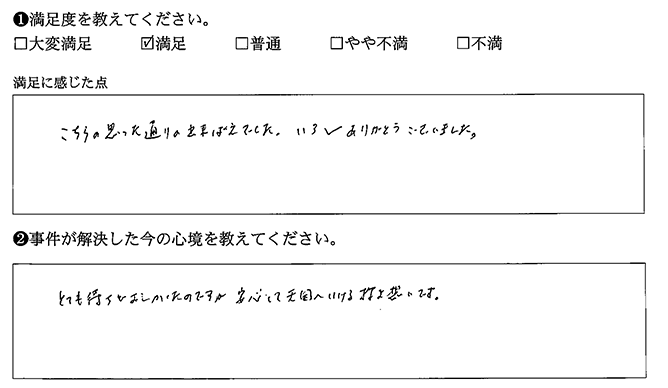 ❶満足度を教えてください。
□大変満足 ☑満足 □普通 □やや不満 □不満
満足に感じた点
こちらの思った通りの出来ばえでした。いろ〱ありがとうございました。
❷事件が解決した今の心境を教えてください。
とても待ちどおしかったのですが安心して天国へいける様な想いです。